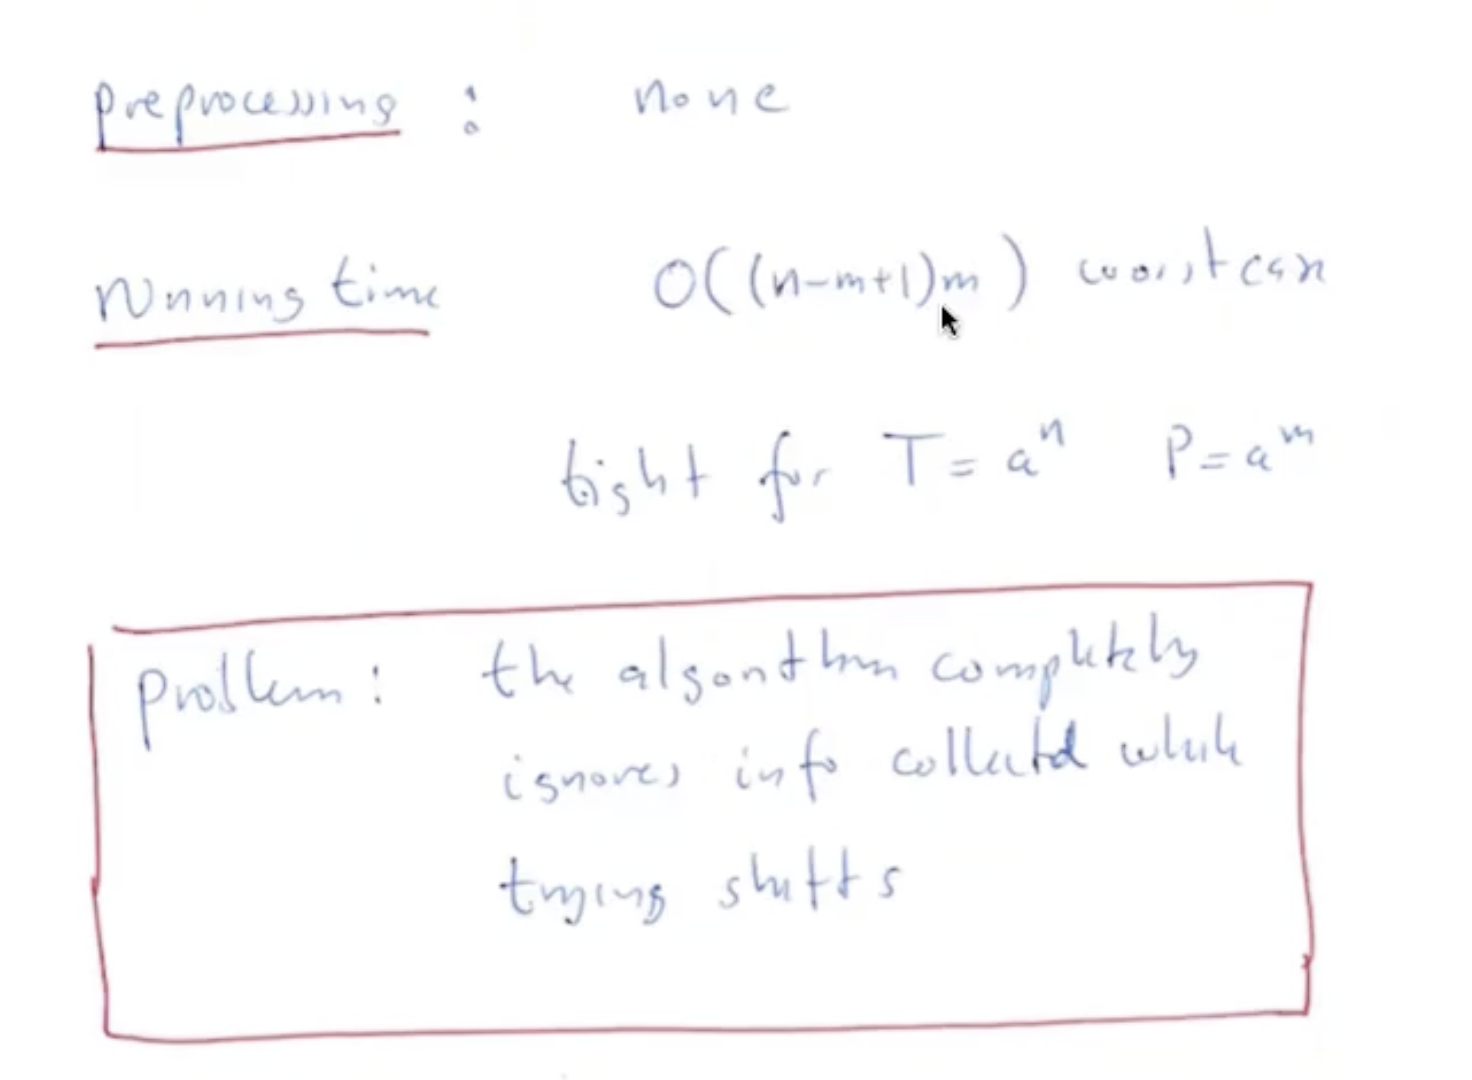 preprocessing : none
running time O((n-m+1)m) worst case
tight for T = aⁿ P = aᵐ
problem: the algorithm completely
ignores info collected while
trying shifts